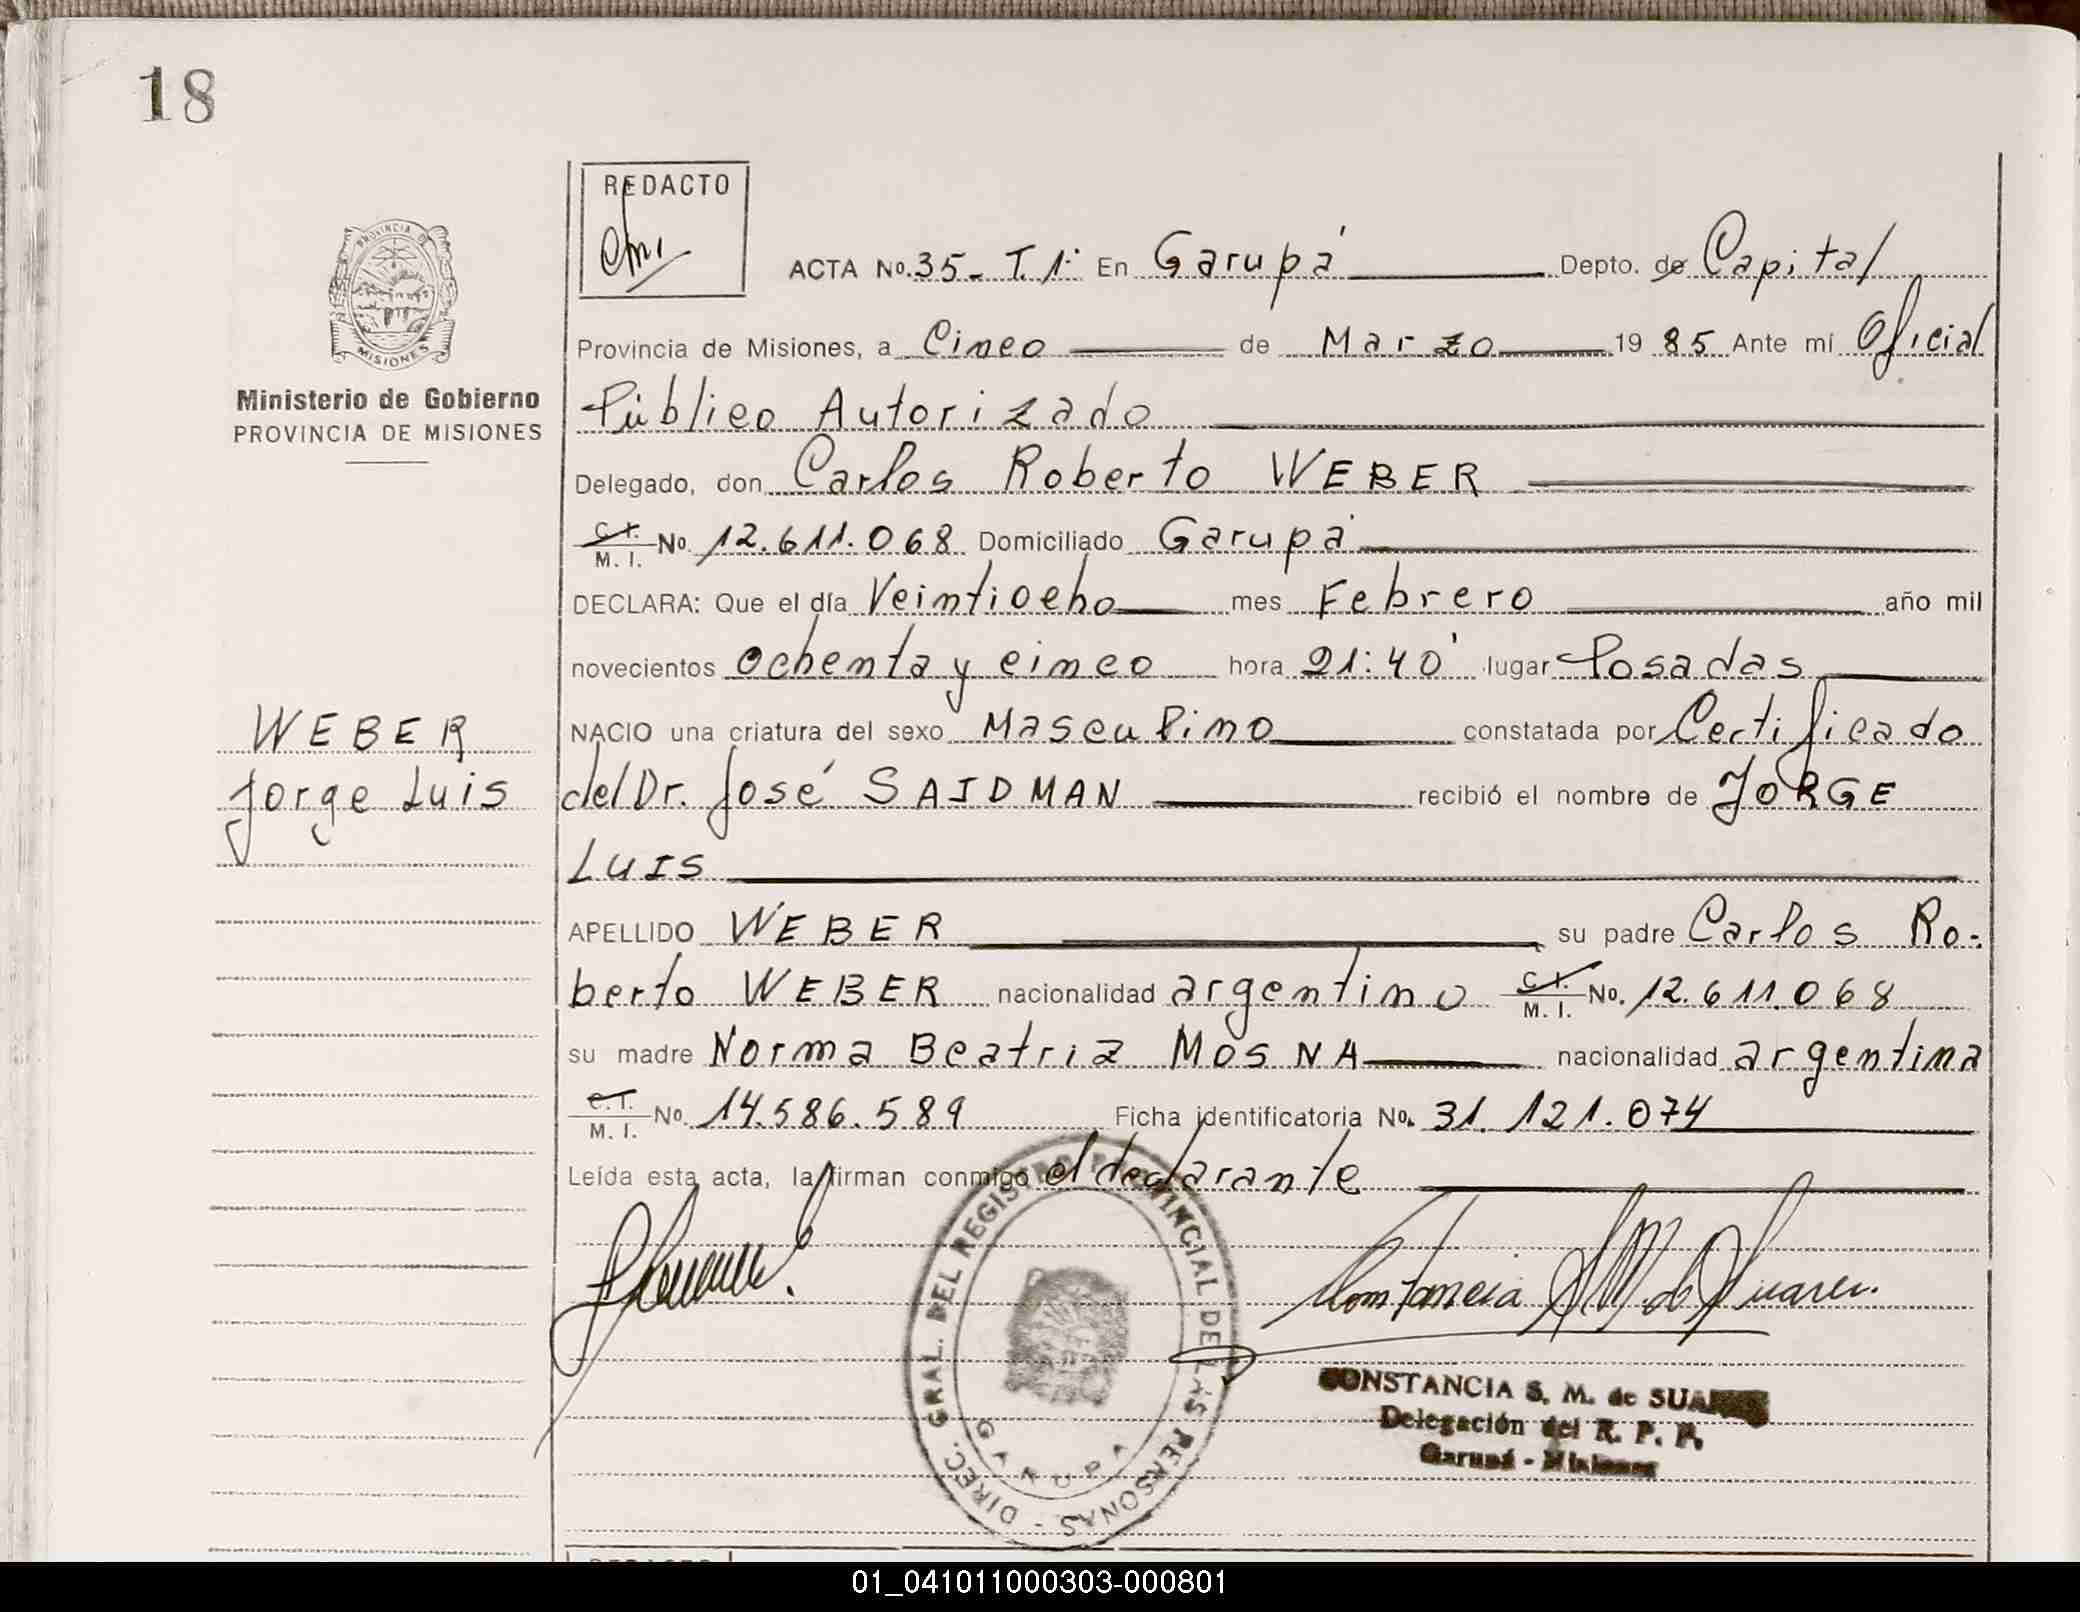 18
REDACTO
PROVINCIA DE
MISIONES
Ministerio de Gobierno
PROVINCIA DE MISIONES
ACTA No. 35- T. 1º En Garupá Depto. de Capital
Provincia de Misiones, a Cinco de Marzo 1985 Ante mí Oficial
Público Autorizado
Delegado, don Carlos Roberto WEBER
C. I. M. I. No. 12.611.068 Domiciliado Garupá
DECLARA: Que el día Veintiocho mes Febrero año mil
novecientos ochenta y cinco hora 21:40' lugar Posadas
WEBER
Jorge Luis
NACIO una criatura del sexo Masculino constatada por Certificado
del Dr. José SAIDMAN recibió el nombre de JORGE
LUIS
APELLIDO WEBER su padre Carlos Ro-
berto WEBER nacionalidad argentino C. I. M. I. No. 12.611.068
su madre Norma Beatriz MOSNA nacionalidad argentina
C. I. M. I. No. 14.586.589 Ficha identificatoria No. 31.121.074
Leída esta acta, la firman conmigo el declarante
DIREC. GRAL. DEL REGISTRO PROVINCIAL DE LAS PERSONAS -
GARUPA
Constancia S M de Suarez.
CONSTANCIA S. M. de SUAREZ
Delegación del R. P. P.
Garupá - Misiones
01_041011000303-000801